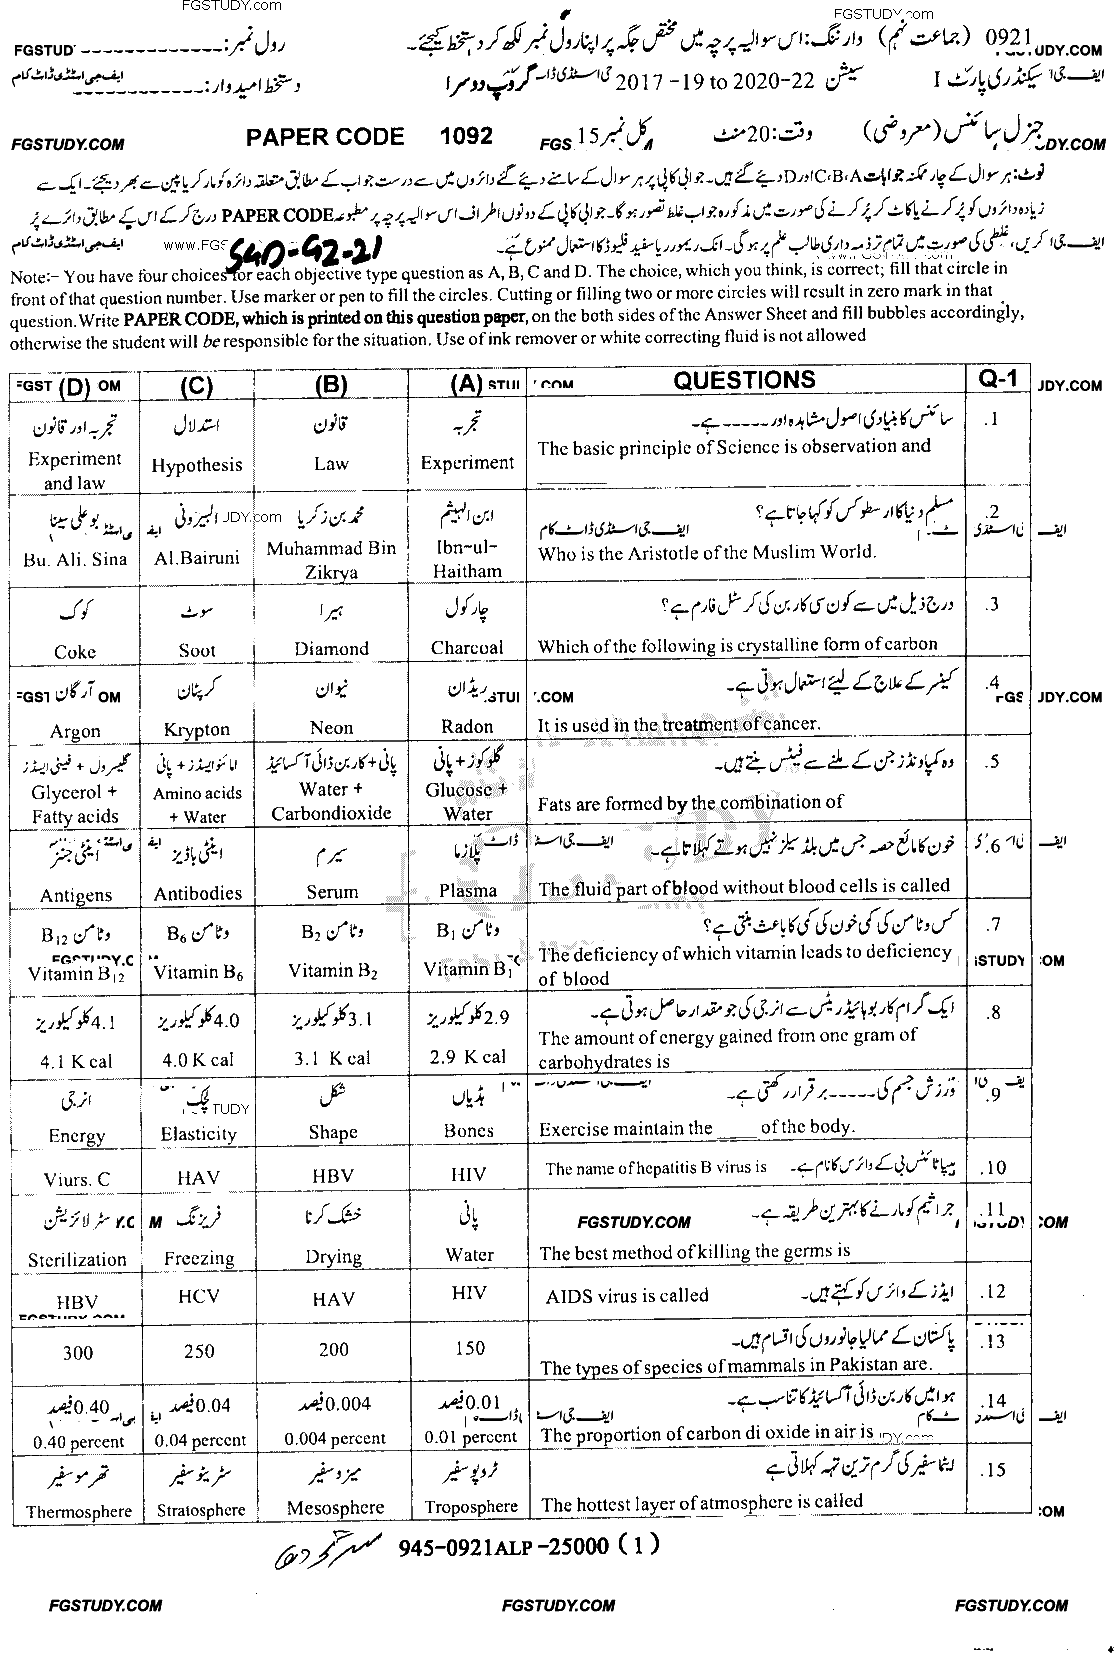 FGSTUDY.com
FGSTUDY.com
0921 (جماعت نہم) وارننگ: اس سوالیہ پرچہ میں مختص جگہ پر اپنا رول نمبر لکھ کر دستخط کیجئے۔ رول نمبر: ------------- FGSTUD
UDY.COM
ایف جی سیکنڈری پارٹ I سیشن 2017-19 to 2020-22 گروپ دوسرا دستخط امیدوار: ------------ ایف جی اسٹڈی ڈاٹ کام
جنرل سائنس (معروضی) وقت: 20 منٹ کل نمبر 15 PAPER CODE 1092
FGSTUDY.COM FGS DY.COM
نوٹ: ہر سوال کے چار ممکنہ جوابات C،B،A اور D دیئے گئے ہیں۔ جوابی کاپی پر ہر سوال کے سامنے دیئے گئے دائروں میں سے درست جواب کے مطابق متعلقہ دائرہ کو مارکر یا پین سے بھر دیجئے۔ ایک سے
زیادہ دائروں کو پُر کرنے یا کاٹ کر پُر کرنے کی صورت میں مذکورہ جواب غلط تصور ہوگا۔ جوابی کاپی کے دونوں اطراف اس سوالیہ پرچہ پر مطبوعہ PAPER CODE درج کر کے اس کے مطابق دائرے پُر
کریں، غلطی کی صورت میں تمام تر ذمہ داری طالب علم پر ہوگی۔ انک ریموور یا سفید فلیوڈ کا استعمال ممنوع ہے۔ www.FGS ایف جی اسٹڈی ڈاٹ کام
SGD-G2-21
Note:- You have four choices for each objective type question as A, B, C and D. The choice, which you think, is correct; fill that circle in
front of that question number. Use marker or pen to fill the circles. Cutting or filling two or more circles will result in zero mark in that
question. Write PAPER CODE, which is printed on this question paper, on the both sides of the Answer Sheet and fill bubbles accordingly,
otherwise the student will be responsible for the situation. Use of ink remover or white correcting fluid is not allowed
FGST (D) OM (C) (B) (A) STUI .COM QUESTIONS Q-1 JDY.COM
تجربہ اور قانون استدلال قانون تجربہ سائنس کا بنیادی اصول مشاہدہ اور ----- ہے۔ .1
Experiment and law Hypothesis Law Experiment The basic principle of Science is observation and ______
بو علی سینا البیرونی JDY.com محمد بن زکریا ابن الہیثم مسلم دنیا کا ارسطو کس کو کہا جاتا ہے؟ .2
ایف جی اسٹڈی ڈاٹ کام
Bu. Ali. Sina Al.Bairuni Muhammad Bin Zikrya Ibn-ul-Haitham Who is the Aristotle of the Muslim World.
کوک سوٹ ہیرا چارکول درج ذیل میں سے کون سی کاربن کی کرسٹل فارم ہے؟ .3
Coke Soot Diamond Charcoal Which of the following is crystalline form of carbon
FGST آرگان OM کرپٹان نیوان ریڈان STUI .COM کینسر کے علاج کے لیئے استعمال ہوتی ہے۔ .4 FGS JDY.COM
Argon Krypton Neon Radon It is used in the treatment of cancer.
گلیسرول + فیٹی ایسڈز امائنو ایسڈز + پانی پانی + کاربن ڈائی آکسائیڈ گلوکوز + پانی وہ کمپاونڈز جن کے ملنے سے فیٹس بنتے ہیں۔ .5
Glycerol + Fatty acids Amino acids + Water Water + Carbondioxide Glucose + Water Fats are formed by the combination of
اینٹی جنز اینٹی باڈیز سیرم پلازما خون کا مائع حصہ جس میں بلڈ سیلز نہیں ہوتے کہلاتا ہے۔ .6
Antigens Antibodies Serum Plasma The fluid part of blood without blood cells is called
وٹامن B12 وٹامن B6 وٹامن B2 وٹامن B1 کس وٹامن کی کمی خون کی کمی کا باعث بنتی ہے؟ .7
FGSTUDY.C STUDY COM
Vitamin B12 Vitamin B6 Vitamin B2 Vitamin B1 The deficiency of which vitamin leads to deficiency of blood
4.1 کلو کیلوریز 4.0 کلو کیلوریز 3.1 کلو کیلوریز 2.9 کلو کیلوریز ایک گرام کاربوہائیڈریٹس سے انرجی کی جو مقدار حاصل ہوتی ہے۔ .8
4.1 K cal 4.0 K cal 3.1 K cal 2.9 K cal The amount of energy gained from one gram of carbohydrates is
انرجی لچک TUDY شکل ہڈیاں ورزش جسم کی ----- برقرار رکھتی ہے۔ .9
Energy Elasticity Shape Bones Exercise maintain the ____ of the body.
Viurs. C HAV HBV HIV The name of hepatitis B virus is ہیپاٹائٹس بی کے وائرس کا نام ہے۔ .10
سٹرلائزیشن Y.C M فریزنگ خشک کرنا پانی FGSTUDY.COM جراثیم کو مارنے کا بہترین طریقہ ہے۔ .11 COM
Sterilization Freezing Drying Water The best method of killing the germs is
HBV HCV HAV HIV AIDS virus is called ایڈز کے وائرس کو کہتے ہیں۔ .12
FGSTUDY.COM
300 250 200 150 پاکستان کے ممالیا جانوروں کی اقسام ہیں۔ .13
The types of species of mammals in Pakistan are.
0.40 فیصد 0.04 فیصد 0.004 فیصد 0.01 فیصد ہوا میں کاربن ڈائی آکسائیڈ کا تناسب ہے۔ .14
0.40 percent 0.04 percent 0.004 percent 0.01 percent The proportion of carbon di oxide in air is DY.com
تھرموسفیر سٹریٹوسفیر میزوسفیر ٹروپوسفیر ایٹماسفیر کی گرم ترین تہہ کہلاتی ہے .15
Thermosphere Stratosphere Mesosphere Troposphere The hottest layer of atmosphere is called COM
945-0921ALP-25000 (1) سرگودھا
FGSTUDY.COM FGSTUDY.COM FGSTUDY.COM